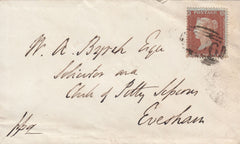 POSTAGE
W. A. Byrch Esqr
Solicitor and
Clerk of Petty Sessions
Evesham